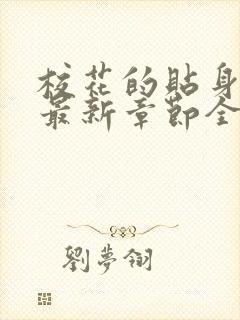 校花的貼身
最新章節全
劉夢翎